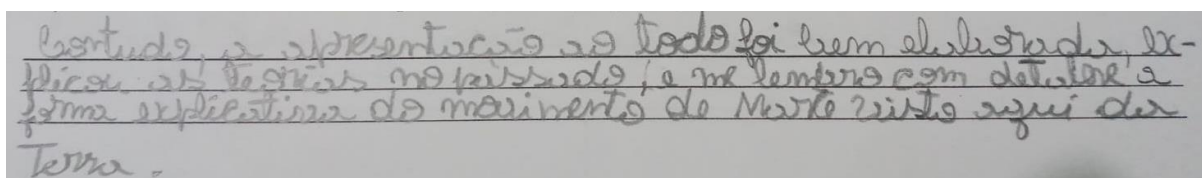 Contudo, a apresentação ao todo foi bem elaborada, ex-
plicou as teorias no passado, e me lembro com detalhe a
forma explicativa do movimento de Marte visto aqui da
Terra.